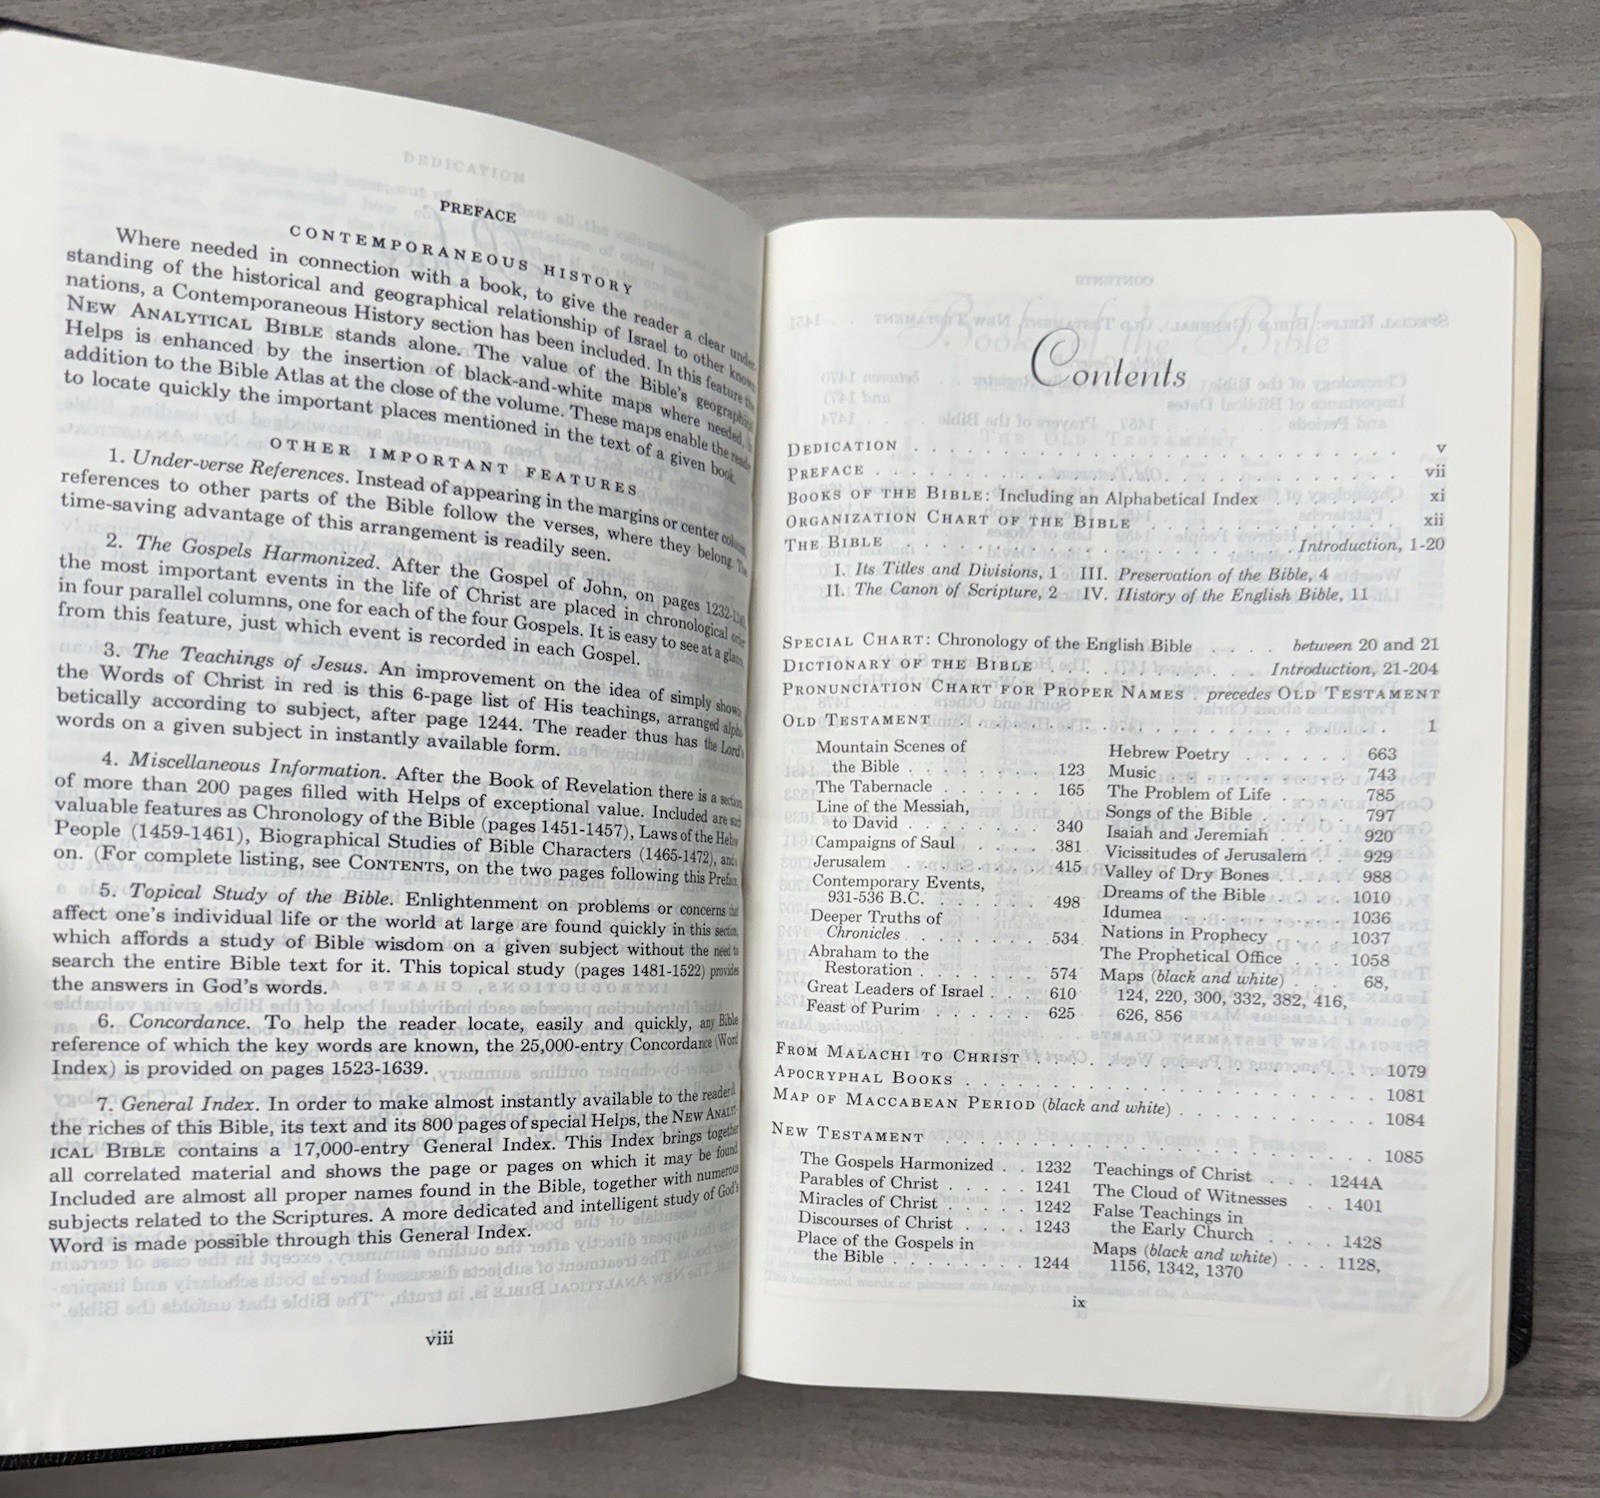 PREFACE
CONTEMPORANEOUS HISTORY
Where needed in connection with a book, to give the reader a clear under-
standing of the historical and geographical relationship of Israel to other known
nations, a Contemporaneous History section has been included. In this feature the
NEW ANALYTICAL BIBLE stands alone. The value of the Bible's geographical
Helps is enhanced by the insertion of black-and-white maps where needed,
addition to the Bible Atlas at the close of the volume. These maps enable the reader
to locate quickly the important places mentioned in the text of a given book.
OTHER IMPORTANT FEATURES
1. Under-verse References. Instead of appearing in the margins or center column,
references to other parts of the Bible follow the verses, where they belong. The
time-saving advantage of this arrangement is readily seen.
2. The Gospels Harmonized. After the Gospel of John, on pages 1232-
the most important events in the life of Christ are placed in chronological order
in four parallel columns, one for each of the four Gospels. It is easy to see at a glance,
from this feature, just which event is recorded in each Gospel.
3. The Teachings of Jesus. An improvement on the idea of simply
the Words of Christ in red is this 6-page list of His teachings, arranged alpha-
betically according to subject, after page 1244. The reader thus has the Lord's
words on a given subject in instantly available form.
4. Miscellaneous Information. After the Book of Revelation there is a section
of more than 200 pages filled with Helps of exceptional value. Included are such
valuable features as Chronology of the Bible (pages 1451-1457), Laws of the
People (1459-1461), Biographical Studies of Bible Characters (1465-1472), and
on. (For complete listing, see CONTENTS, on the two pages following this
5. Topical Study of the Bible. Enlightenment on problems or concerns that
affect one's individual life or the world at large are found quickly in this section,
which affords a study of Bible wisdom on a given subject without the need to
search the entire Bible text for it. This topical study (pages 1481-1522) provides
the answers in God's words.
6. Concordance. To help the reader locate, easily and quickly, any Bible
reference of which the key words are known, the 25,000-entry Concordance (Word
Index) is provided on pages 1523-1639.
7. General Index. In order to make almost instantly available to the reader
the riches of this Bible, its text and its 800 pages of special Helps, the NEW ANALYT-
ICAL BIBLE contains a 17,000-entry General Index. This Index brings together
all correlated material and shows the page or pages on which it may be found.
Included are almost all proper names found in the Bible, together with numerous
subjects related to the Scriptures. A more dedicated and intelligent study of God's
Word is made possible through this General Index.
viii
Contents
DEDICATION . . . v
PREFACE . . . vii
BOOKS OF THE BIBLE: Including an Alphabetical Index . . . xi
ORGANIZATION CHART OF THE BIBLE . . . xii
THE BIBLE . . . Introduction, 1-20
I. Its Titles and Divisions, 1 III. Preservation of the Bible, 4
II. The Canon of Scripture, 2 IV. History of the English Bible, 11
SPECIAL CHART: Chronology of the English Bible . . . between 20 and 21
DICTIONARY OF THE BIBLE . . . Introduction, 21-204
PRONUNCIATION CHART FOR PROPER NAMES . precedes OLD TESTAMENT
OLD TESTAMENT . . . 1
Mountain Scenes of
the Bible . . . 123
The Tabernacle . . . 165
Line of the Messiah,
to David . . . 340
Campaigns of Saul . . . 381
Jerusalem . . . 415
Contemporary Events,
931-536 B.C. . . . 498
Deeper Truths of
Chronicles . . . 534
Abraham to the
Restoration . . . 574
Great Leaders of Israel . . . 610
Feast of Purim . . . 625
Hebrew Poetry . . . 663
Music . . . 743
The Problem of Life . . . 785
Songs of the Bible . . . 797
Isaiah and Jeremiah . . . 920
Vicissitudes of Jerusalem . . . 929
Valley of Dry Bones . . . 988
Dreams of the Bible . . . 1010
Idumea . . . 1036
Nations in Prophecy . . . 1037
The Prophetical Office . . . 1058
Maps (black and white) . . . 68,
124, 220, 300, 332, 382, 416,
626, 856
FROM MALACHI TO CHRIST . . . 1079
APOCRYPHAL BOOKS . . . 1081
MAP OF MACCABEAN PERIOD (black and white) . . . 1084
NEW TESTAMENT . . . 1085
The Gospels Harmonized . . 1232
Parables of Christ . . . 1241
Miracles of Christ . . . 1242
Discourses of Christ . . . 1243
Place of the Gospels in
the Bible . . . 1244
Teachings of Christ . . . 1244A
The Cloud of Witnesses . . 1401
False Teachings in
the Early Church . . . 1428
Maps (black and white) . . . 1128,
1156, 1342, 1370
ix